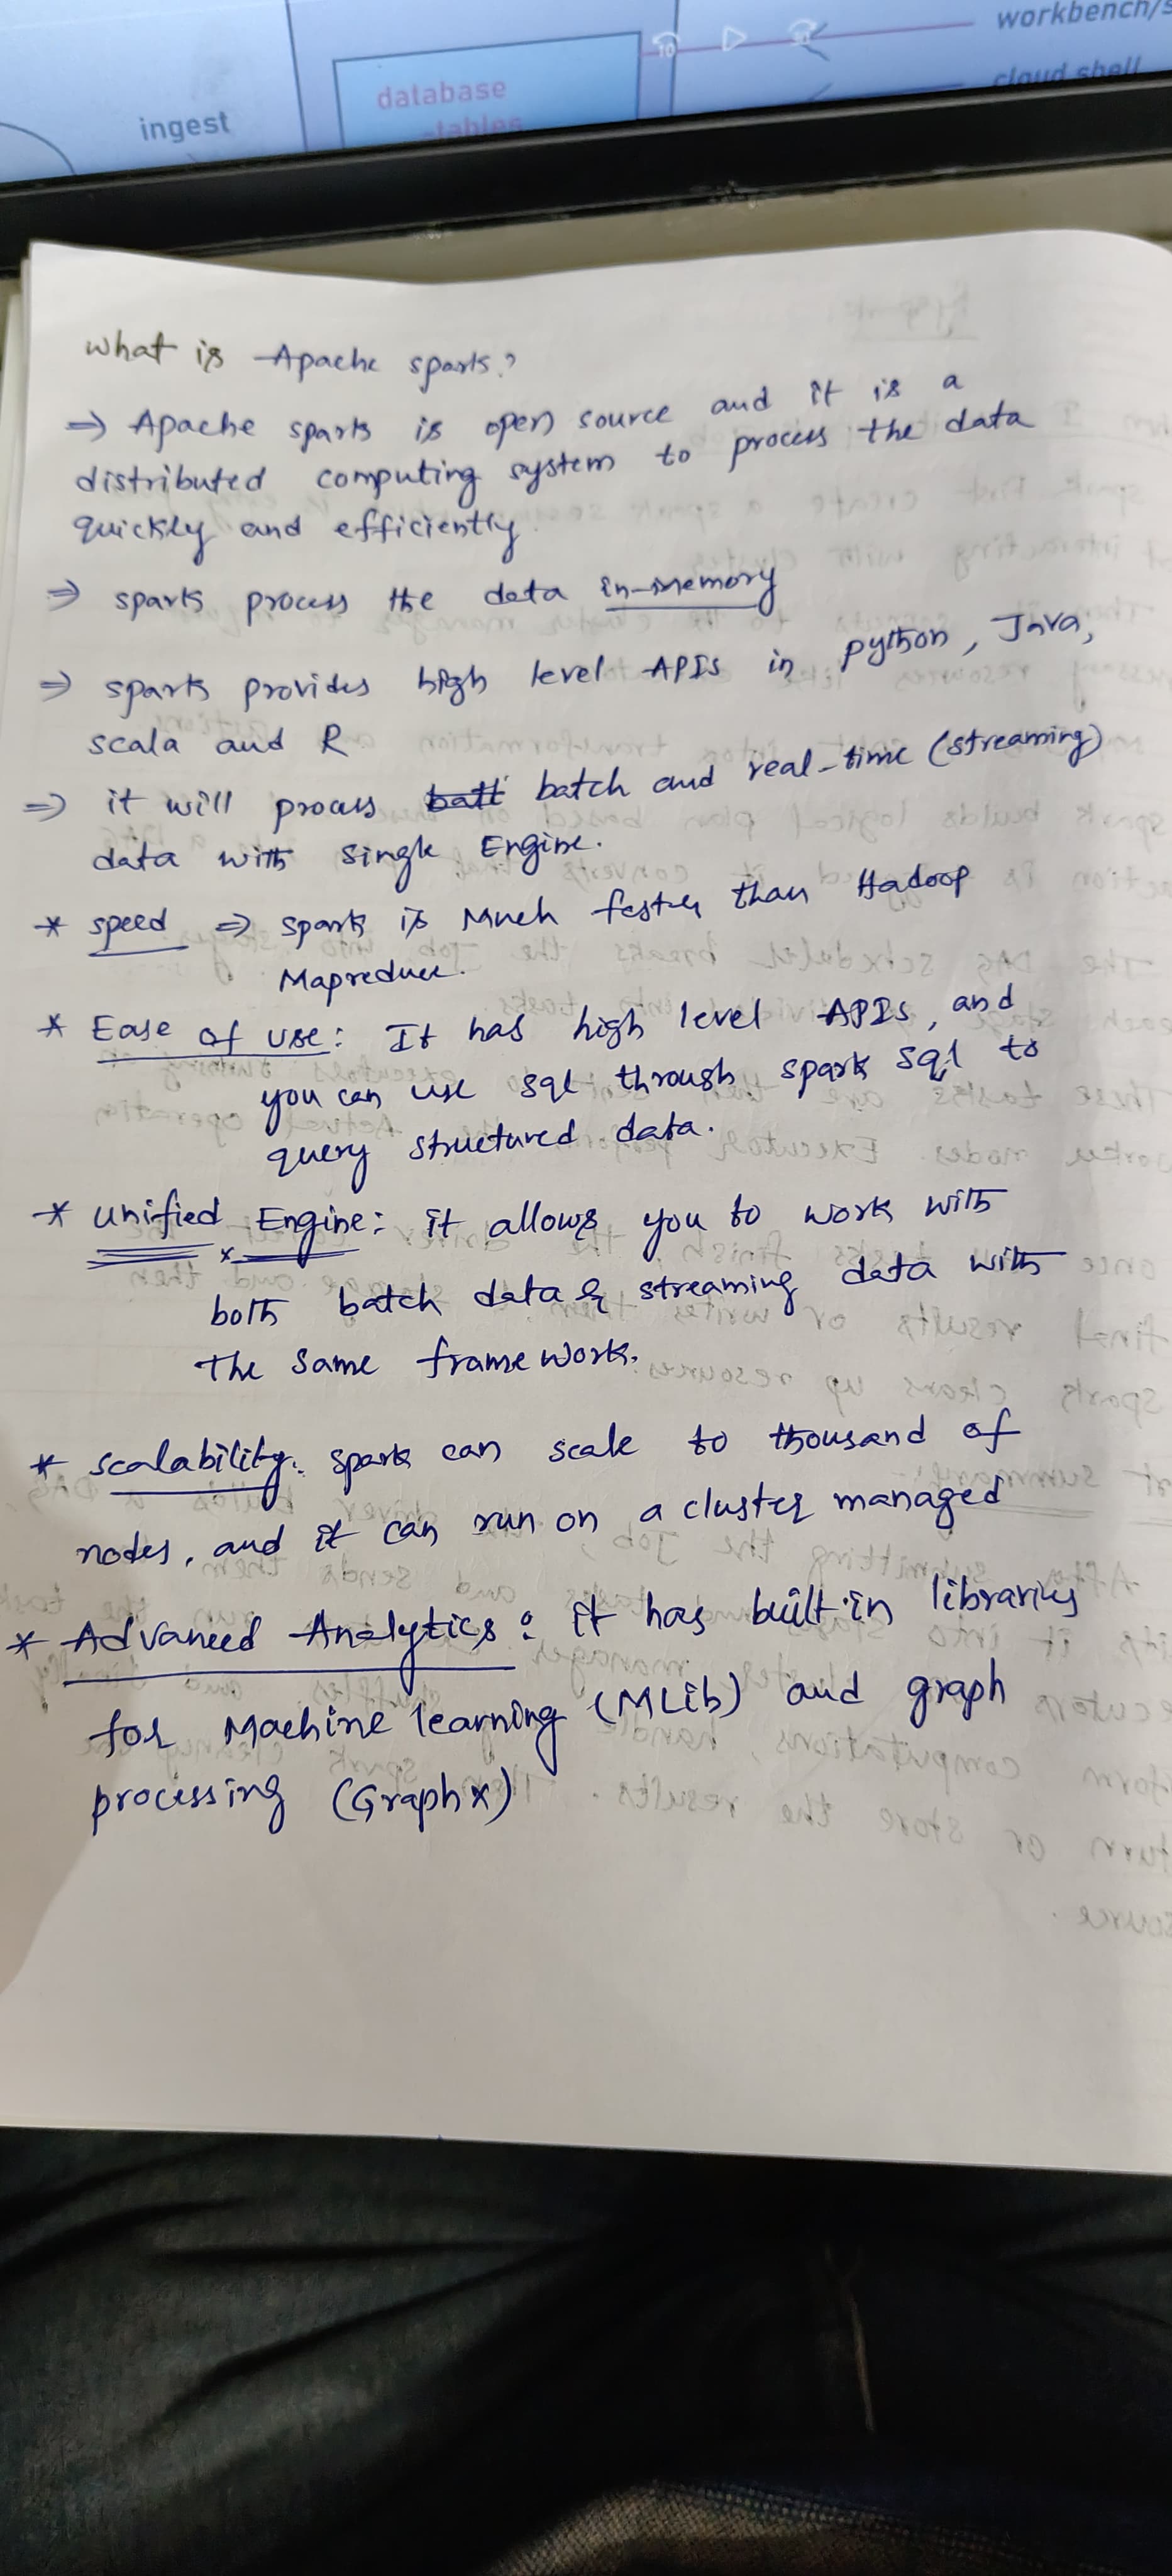 workbench/s
cloud shell
database
tables
ingest
10
what is Apache spark?
⇒ Apache spark is open source and it is a
distributed computing system to process the data
quickly and efficiently.
⇒ spark process the data in-memory
⇒ spark provides high level APIs in python, Java,
scala and R
⇒ it will process batt batch and real-time (streaming)
data with single Engine.
* speed ⇒ spark is Much faster than Hadoop
Mapreduce.
* Ease of use: It has high level APIs, and
you can use sql through spark sql to
query structured data.
* unified Engine: it allows you to work with
both batch data & streaming data with
the same frame work.
* scalability: spark can scale to thousand of
nodes, and it can run on a cluster managed
* Advanced Analytics: it has built-in libraries
for Machine learning (MLib) and graph
processing (Graphx)